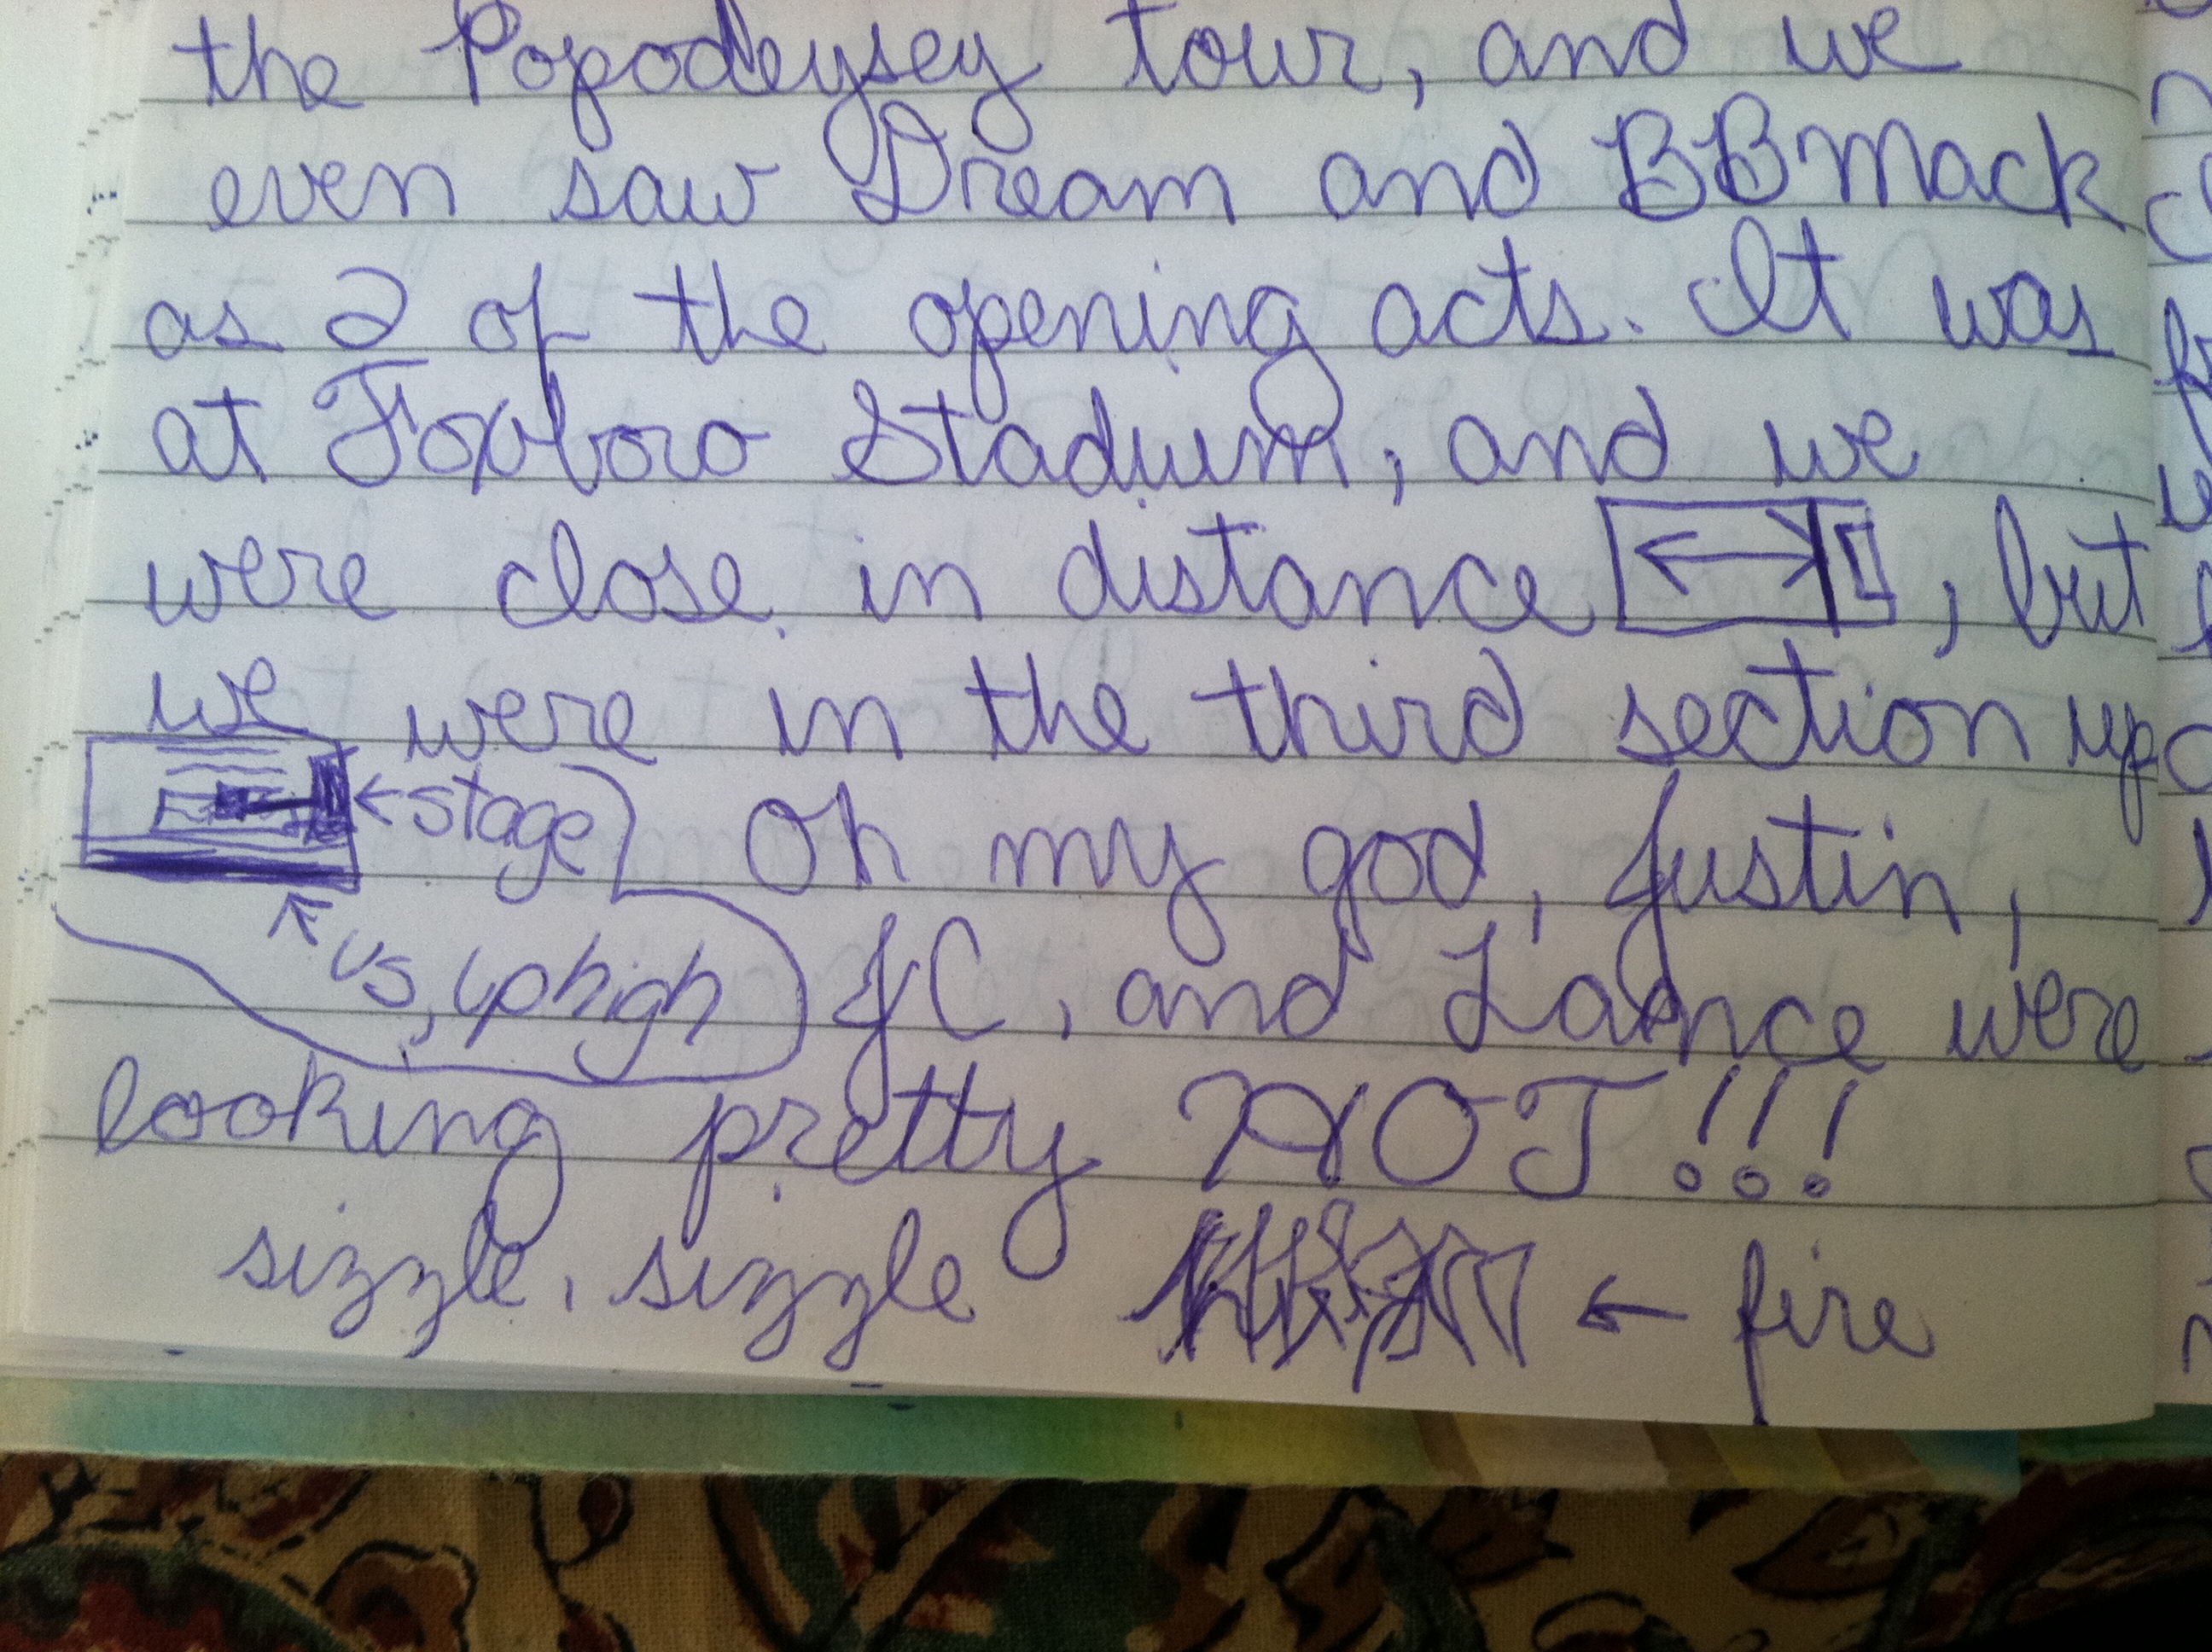 the Popodeysey tour, and we
even saw Dream and BBmack
as 2 of the opening acts. It was
at Foxboro Stadium, and we
were close in distance , but
we were in the third section up
←stage Oh my god, Justin,
us, up high JC, and Lance were
looking pretty HOT!!!
sizzle, sizzle ← fire